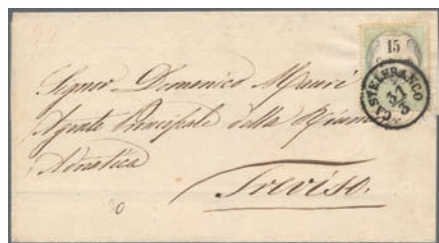 15
CASTELFRANCO
31
3
Signor Domenico Mauri
Agente Principale della Riun
Adriatica
Treviso.